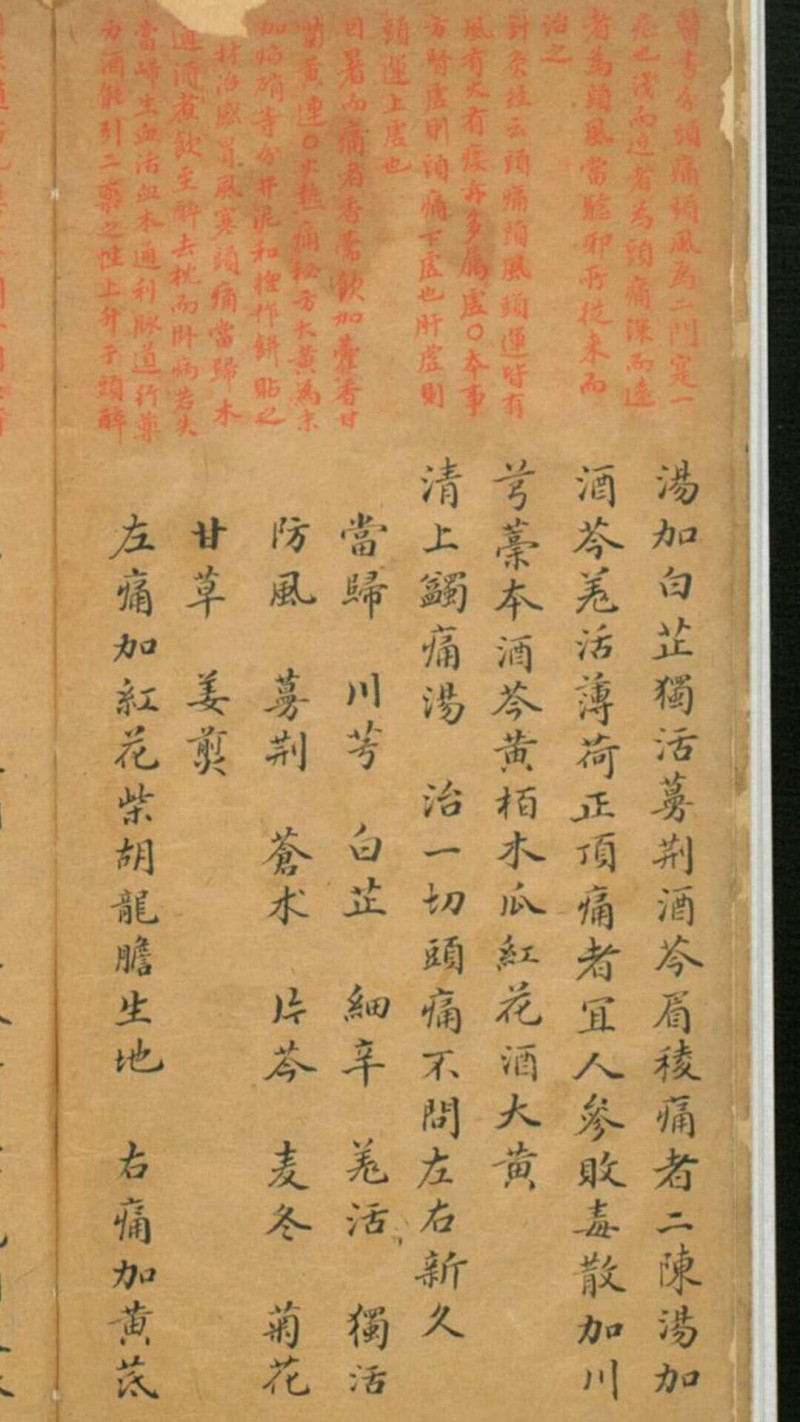 醫書分頭痛頭風為二門寔一
症也淺而近者為頭痛深而遠
者為頭風當驗邪所從來而
治之
針灸經云頭痛頭風頭運皆有
風有火有痰亦多属虛〇本事
方腎虛則頭痛下虛也肝虛則
頭運上虛也
因暑而痛者香薷飲加藿香甘
菊黃連〇火熱痛秘方大黃為末
加焰硝等分井泥和捏作餅貼之
村治感冒風寒頭痛當歸木
通酒煮飲至醉去枕而卧病若失
當歸生血活血木通利脉道行藥
力酒能引二藥之性上升于頭醉
湯加白芷獨活蔓荆酒芩眉稜痛者二陳湯加
酒芩羌活薄荷正頂痛者宜人參敗毒散加川
芎藁本酒芩黄栢木瓜紅花酒大黄
清上蠲痛湯　治一切頭痛不問左右新久
當歸　川芎　白芷　細辛　羌活　獨活
防風　蔓荆　蒼朮　片芩　麦冬　菊花
甘草　姜煎
左痛加紅花柴胡龍膽生地　右痛加黄芪